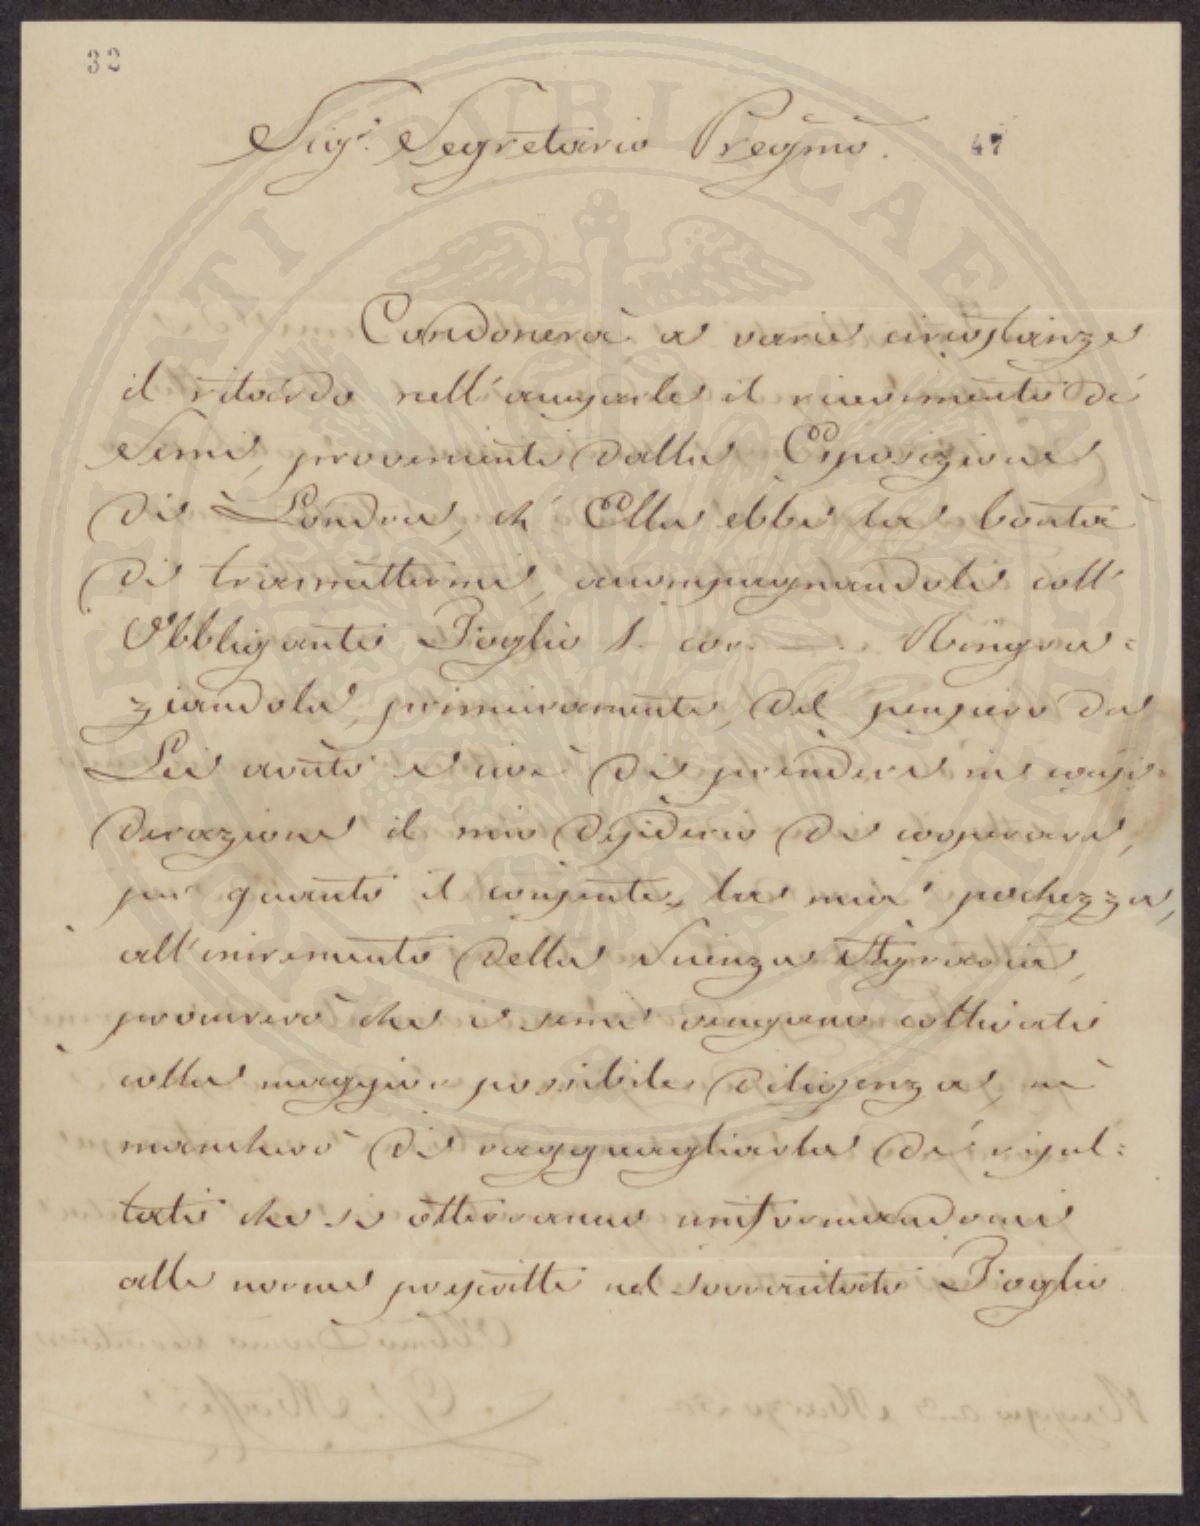 32
Sigr. Segretario Pregmo.
47
Condonerà a varie circostanze
il ritardo nell'accusarle il ricevimento dei
Semi, provenienti dalla Esposizione
di Londra, ch' Ella ebbe la bontà
di trasmettermi, accompagnandoli coll'
Obbligante Foglio 1. cor. Ringra=
ziandola, primieramente, del pensiero da
Lei avuto e cioè di prendere in consi=
derazione il mio desiderio di cooperare,
per quanto il consente la mia pochezza,
all'incremento della Scienza Agraria,
procurerò che i semi vengano coltivati
colla maggior possibile diligenza, nè
mancherò di ragguagliarla dei risul=
tati che si otterranno uniformandomi
alle norme prescritte nel sovracitato Foglio